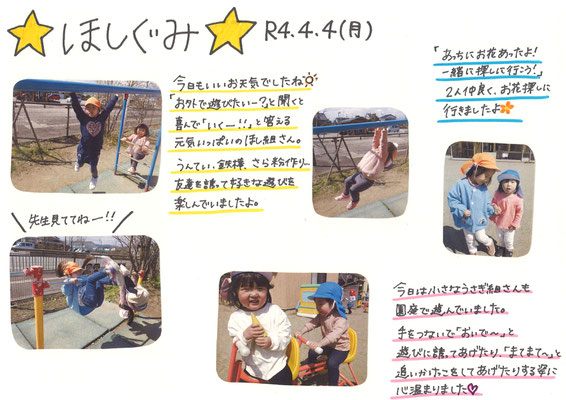 ほしぐみ R4.4.4(月)
今日もいいお天気でしたね
「お外で遊びたいー？」と聞くと
喜んで「いくー！！」と答える
元気いっぱいのほし組さん。
うんてい、鉄棒、さら粉作り…
友達を誘って好きな遊びを
楽しんでいましたよ。
「あっちにお花あったよ！
一緒に探しに行こう！」
2人仲良く、お花探しに
行きましたよ
先生見ててねー！！
今日は小さなうさぎ組さんも
園庭で遊んでいました。
手をつないで「おいで〜」と
遊びに誘ってあげたり、「まてまて〜」と
追いかけっこをしてあげたりする姿に
心温まりました♡